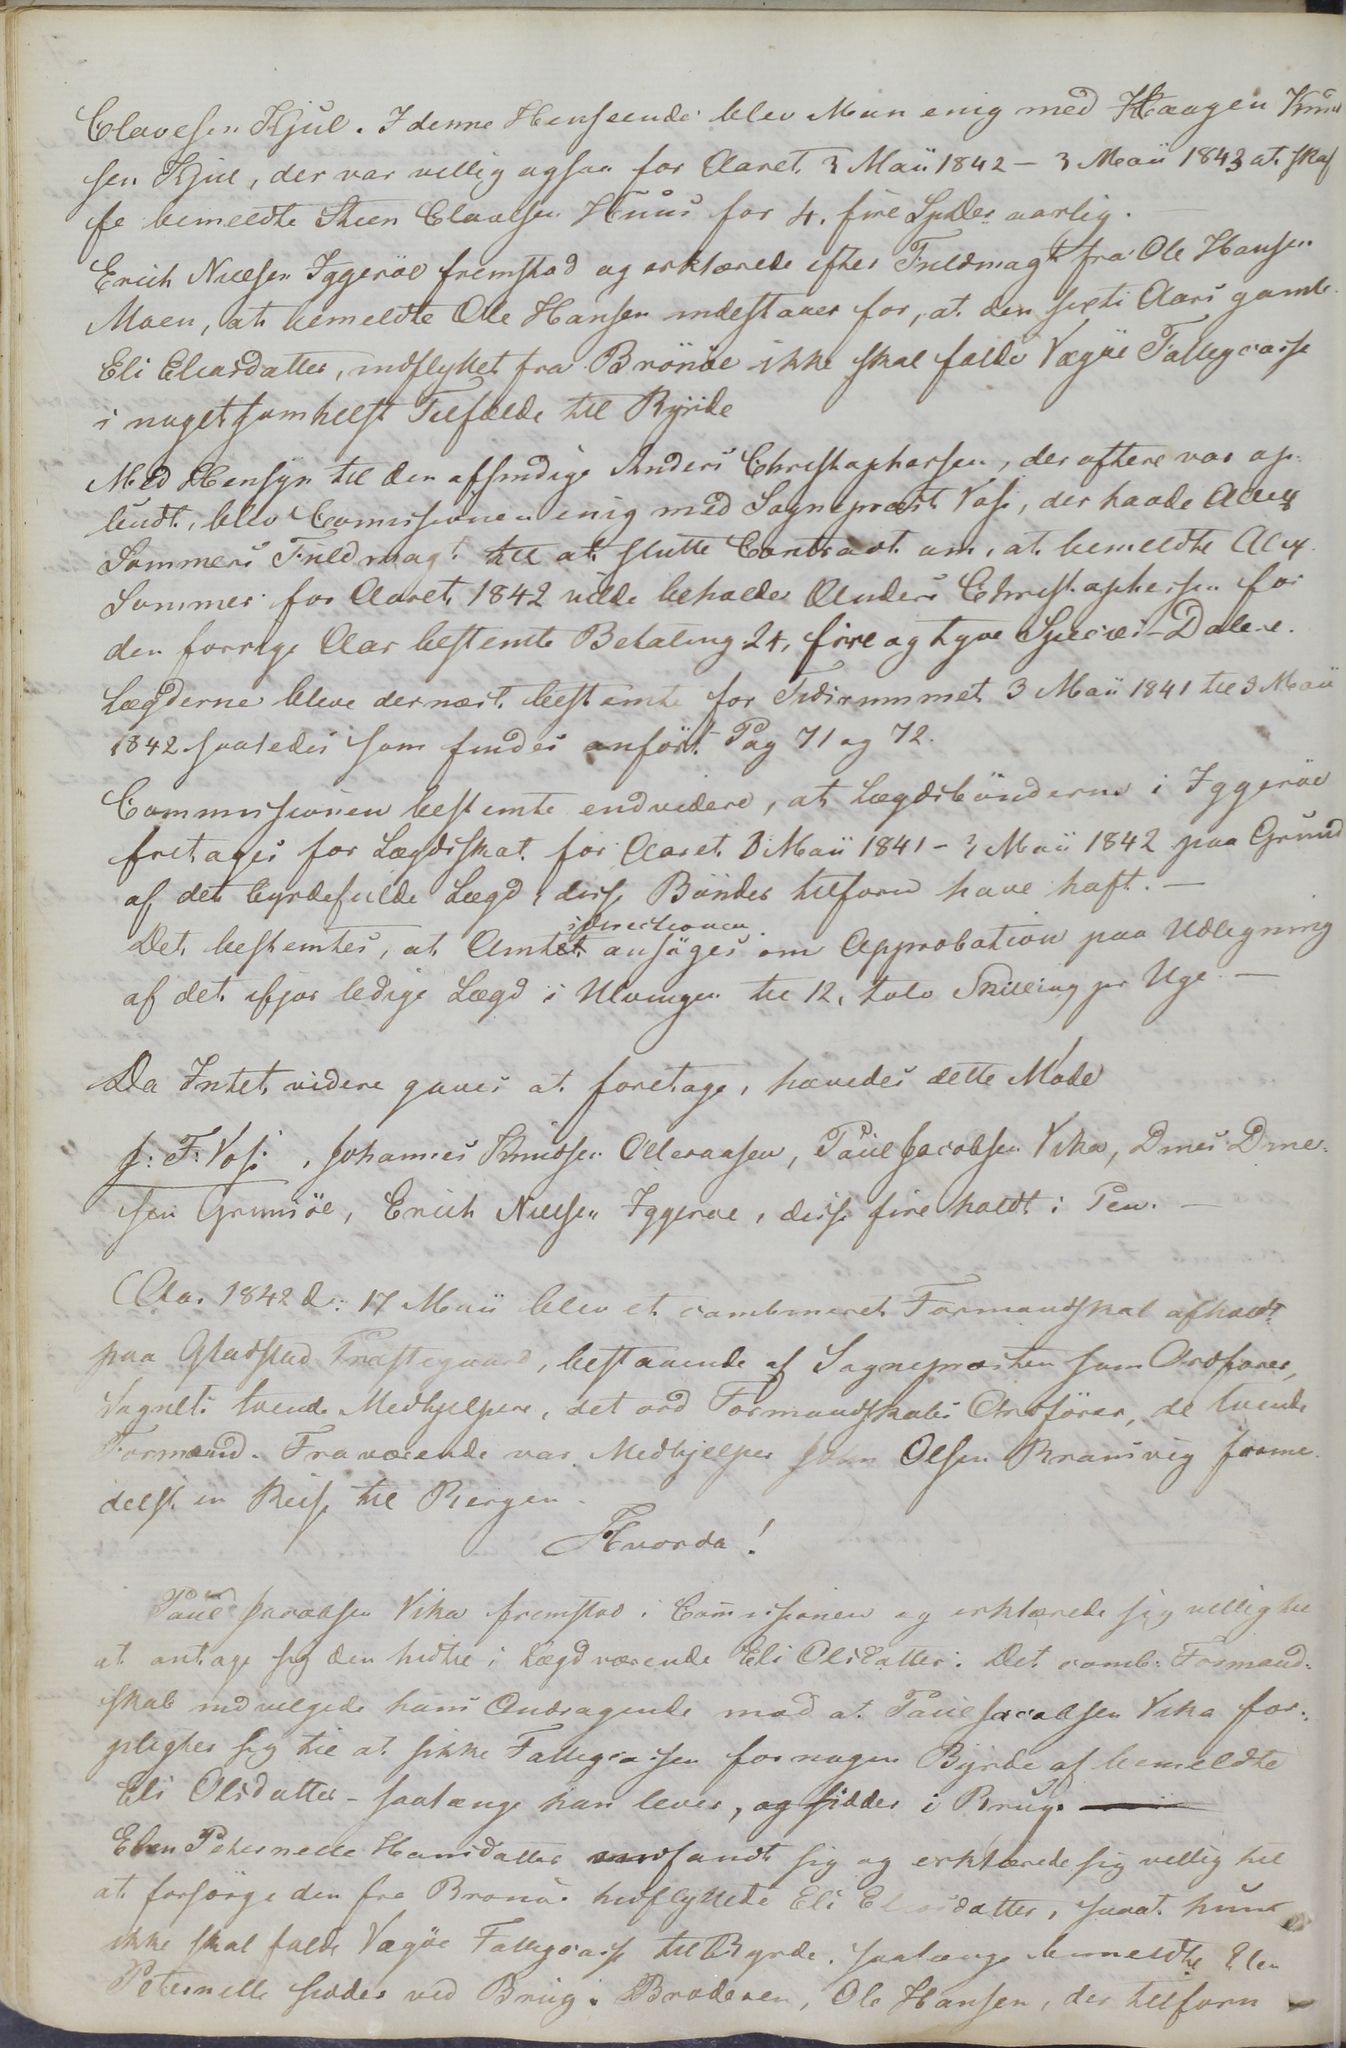 Olavesen Kjul. I denne Henseende blev Man enig med Haagen Knud
sen Kjul, der var villig ogsaa for Aaret 3 Maii 1842 - 3 Maii 1843 at skaf
fe bemeldte Steen Olavesen Huus for 4, fire Spdlr aarlig.
Erich Nielsen Iggeröe fremstod og erklærede efter Fuldmagt fra Ole Hansen
Moen, at bemeldte Ole Hansen indestaaer for, at den sexti Aars gamle
Eli Eliasdatter, indflyttet fra Brönöe ikke skal falde Vægöe Fattigcasse
i nogetsomhelst Tilfælde til Byrde
Med Hensyn til den afsindige Anders Christophersen, der oftere var op-
budt, blev Comissionen enig med Sognepræst Voss, der havde Alex
Sommers Fuldmagt til at slutte Contract om, at bemeldte Alex
Sommer for Aaret 1842 vilde beholde Anders Christophersen for
den forrige Aar bestemte Betaling 24, fire og tyve Species-Dalere.
Lægderne bleve dernæst bestemte for Tidsrummet 3 Maii 1841 til 3 Maii
1842 saaledes som findes anfört Pag 71 og 72.
Commissionen bestemte endvidere, at Lægdsbönderne i Iggeröe
fritages for Lægdsskat for Aaret 3 Maii 1841 - 3 Maii 1842 paa Grund
af det byrdefulde Lægd, disse Bönder tilforn have haft. -
sdirectionen
Det bestemtes, at Amtet ansöges om Approbation paa Udlegning
af det ifjor ledige Lægd i Ulvingen til 12, tolv Skilling pr Uge -
Da Intet videre gaves at foretage, hævedes dette Möde
J: F: Voss, Johannes Knudsen Olleraasen, Paul Jacobsen Vika, Dines Dine-
sen Grimsöe, Erich Nielsen Iggeröe, disse fire holdt i Pen. -
Aar 1842 d: 17 Maii blev et combineret Formandskab afholdt
paa Gladstad Præstegaard, bestaaende af Sognepræsten som Ordförer,
Sognets tvende Medhjelpere, det ord Formandskabs Ordförer, de tvende
Formænd. Fraværende var Medhjelper John Olsen Ramsvig forme-
delst en Reise til Bergen.
Hvorda!
Paul Jacobsen Vika fremstod i Comissionen og erklærede sig villig til
at antage sig den hidtil i Lægd værende Eli Olsdatter. Det comb: Formand-
skab indvilgede hans Andragende mod at Paul Jacobsen Vika for-
pligter sig til at sikke Fattigcassen for nogen Byrde af bemeldte
Eli Olsdatter - saalænge han lever, og sidder i Brug.
Elen Peternelle Hansdatter indfandt sig og erklærede sig villig til
at forsörge den fra Brönö hidflyttede Eli Eliasdatter, saaat hun
ikke skal falde Vægöe Fattigcasse til Byrde, saalænge bemeldte Elen
Peternelle sidder ved Brug. Broderen, Ole Hansen, der tilforn